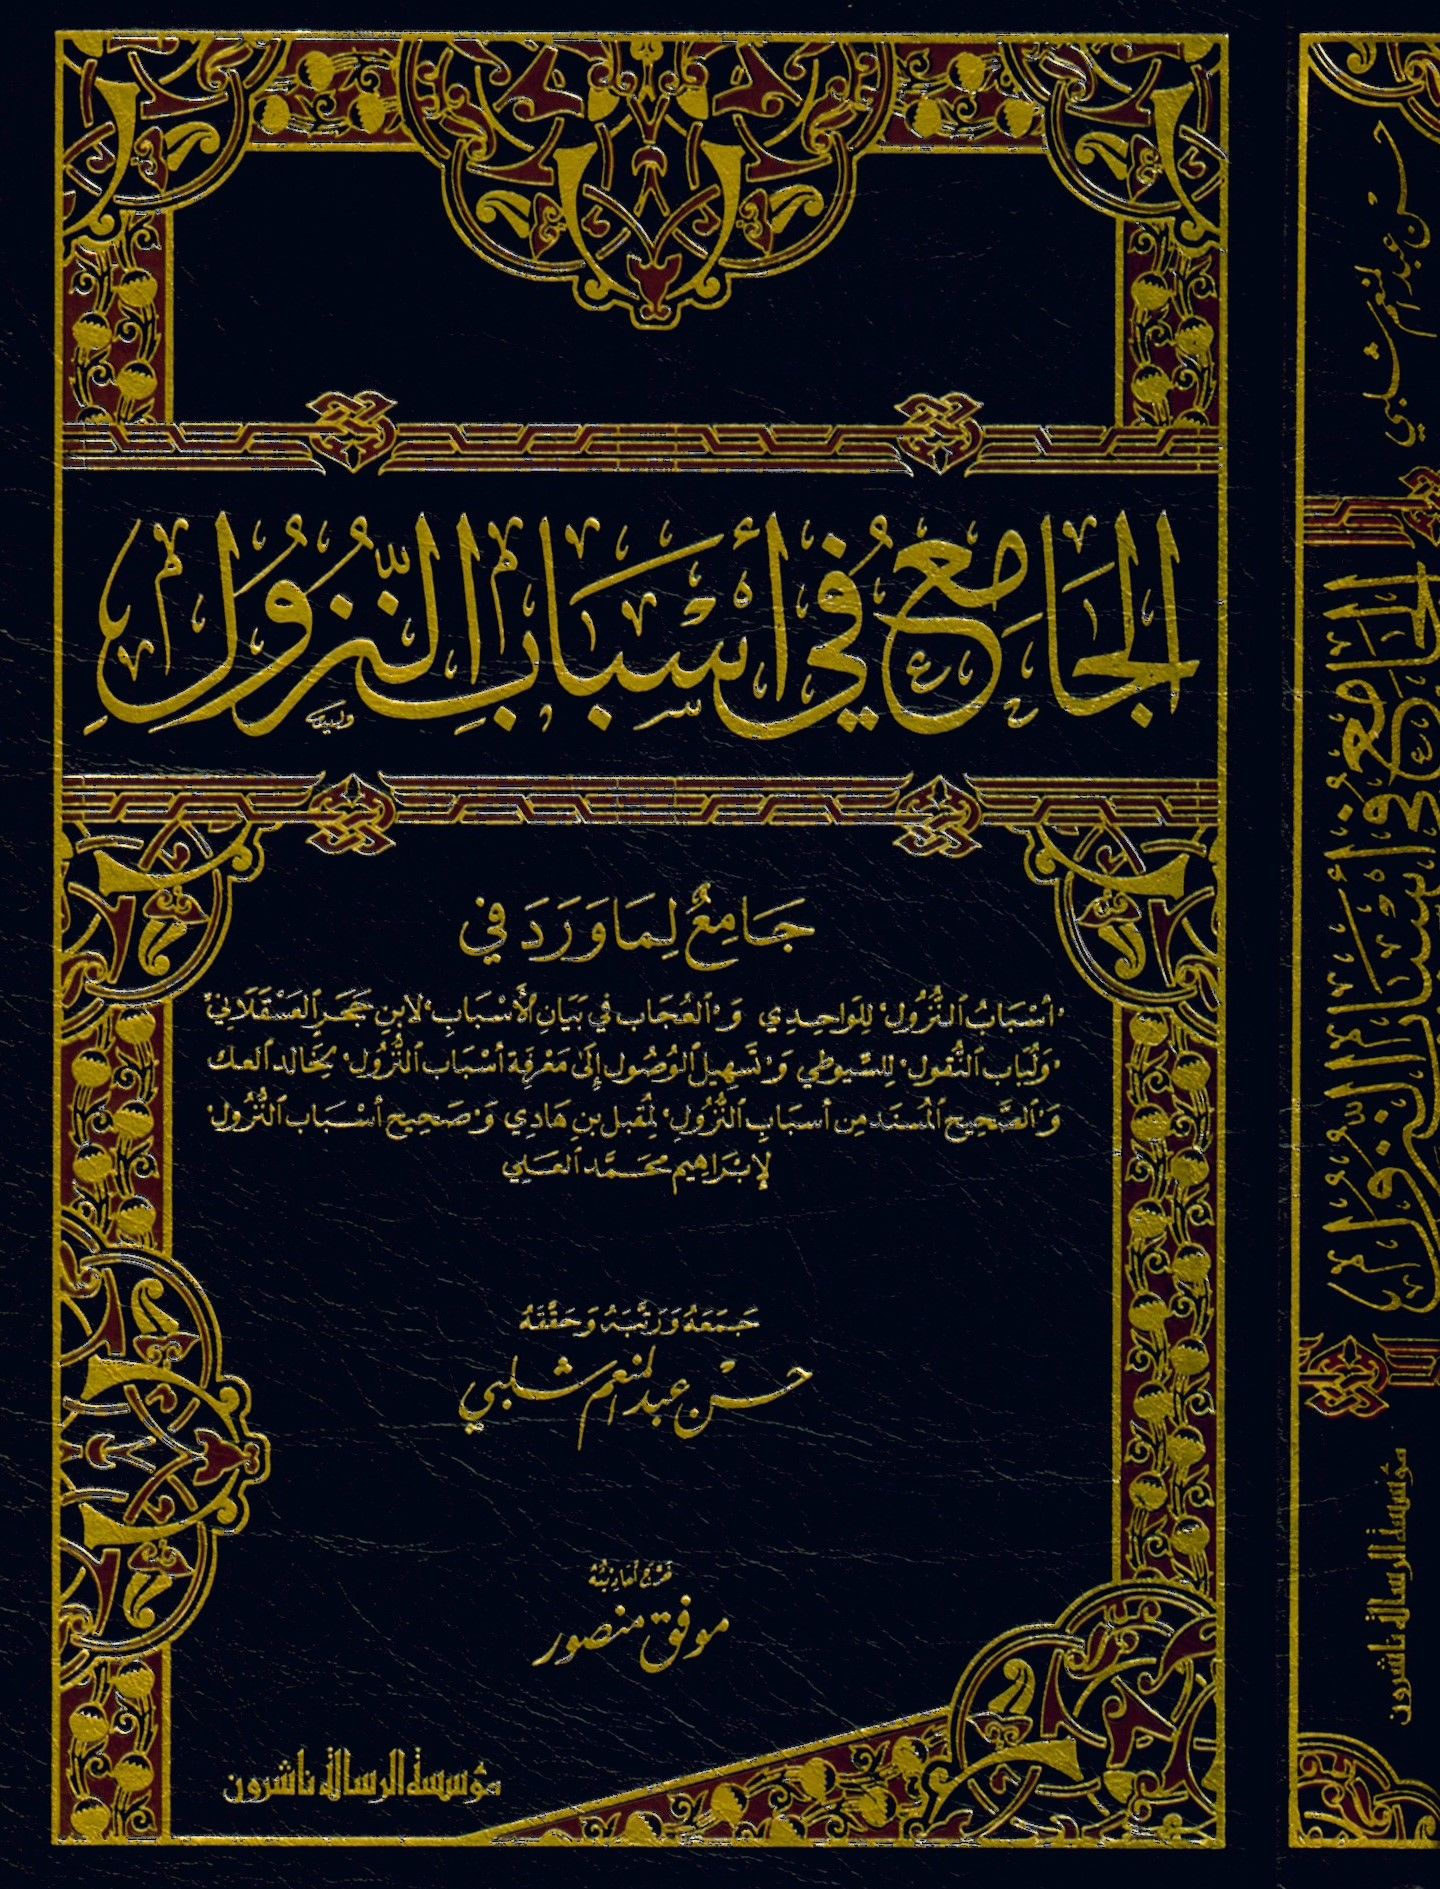 الجَامِعُ فِي أَسْبَابِ النُّزُولِ
وليد
جَامِعٌ لِمَا وَرَدَ فِي
"أَسْبَابُ النُّزُولِ" لِلوَاحِدِي وَ"العُجَاب فِي بَيَانِ الأَسْبَابِ" لابنِ حَجَرِ العَسْقَلَانِيّ
"وَلُبَاب النُّقُولِ" لِلسُّيوطِي وَ"تَسْهِيل الوُصُول إِلَى مَعْرِفَةِ أَسْبَاب النُّزُولِ" لِخَالد العك
وَ"الصَّحِيح المُسنَد مِن أَسبَابِ النُّزُولِ" لِمُقبل بنِ هَادِي وَ"صَحِيح أسْبَاب النُّزُول"
لإِبْرَاهِيم محَمَّد العَلِي
جَمَعَهُ وَرَتَّبَهُ وَحَقَّقَهُ
حسن عبد المنعم شلبي
خرّج أحاديثه
موفق منصور
مؤسسة الرسالة ناشرون
حسن عبد المنعم شلبي
الجَامِعُ فِي أَسْبَابِ النُّزُولِ
مؤسسة الرسالة ناشرون